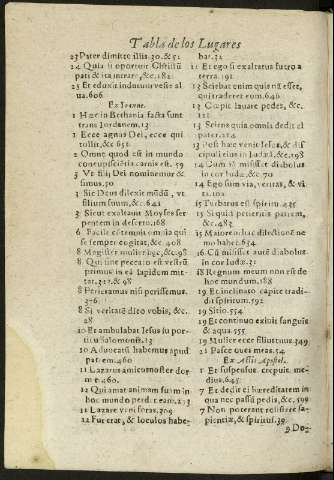 Tabla de los Lugares
23 Pater dimitte illis. 30. & 51
24 Quia sic oportuit Christũ
pati & ita intrare, &c. 182.
25 Et eduxit indumẽ veste al
ua. 606.
Ex Ioanne.
1 Hæc in Bethania facta sunt
trans Iordanem. 13
1 Ecce agnus Dei, ecce qui
tollit, &c 651.
2 Omne quod est in mundo
concupiscẽtia carnis est. 59
3 Vt filij Dei nominemur &
simus. 50
3 Sic Deus dilexit mũdũ, vt
filium suum, &c. 641
3 Sicut exaltauit Moyses ser
pentem in deserto. 168
6 Facile cõtemnit omnia qui
se semper cogitat, &c. 408
8 Magister mulier hæc, &c. 98
8 Qui sine peccato est vestrũ
primus in eã lapidem mit-
tat. 312. & 98
8 Perieramus nisi perissemus.
376.
8 Si veritatẽ dico vobis, &c.
28
10 Et ambulabat Iesus in por-
ticu Salomonis. 13
10 Aduocatũ habemus apud
patrem. 460
11 Lazarus amicus noster dor
mit. 460.
12 Qui amat animam suam in
hoc mundo perdit eam. 213
11 Lazare veni foras. 209
12 Fur erat, & loculos habe-
bat. 32
12 Et ego si exaltatus fuero a
terra. 191
13 Sciebat enim quis nã esset,
qui traderet eum. 646
13 Cœpit lauare pedes, &c.
122
13 Sciens quia omnia dedit ei
pater. 214
13 Post hæc venit Iesus, & di
cipuli eius in Iudæã, &c. 198
14 Cum iã misisset diabolus
in cor Iudæ, &c. 70
14 Ego sum via, veritas, & vi
ta. 102
15 Turbatus est spiritu. 435
15 Si quid petieritis patrem,
&c. 483
15 Maiorẽ hac dilectionẽ ne
mo habet. 654
16 Cũ misisset autẽ diabolus
in cor Iudæ. 31
18 Regnum meum non est de
hoc mundo. 188
19 Et inclinato capite tradi-
dit spiritum. 592
19 Sitio. 554
19 Et continuo exiuit sanguis
& aqua. 555
19 Mulier ecce filius tuus. 349
21 Pasce oues meas. 54
Ex Actis Apostol.
1 Et suspensus crepuit me-
dius. 645
7 Et dedit ei hæreditatem in
qua nec passũ pedis, &c. 599
7 Non poterant resistere sa-
pientiæ, & spiritui. 39
9 Do-